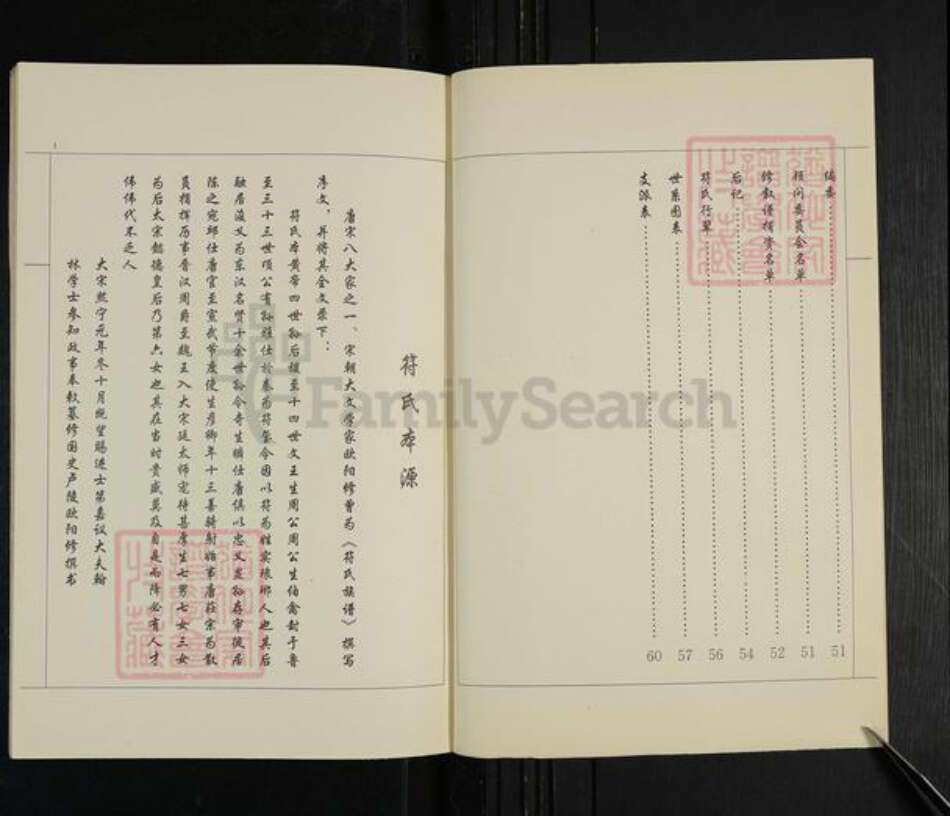 编委 51
顾问委员会名单 51
修叙谱捐资名单 52
后记 54
符氏行辈 56
世系图表 57
支派表 60
符氏本源
唐宋八大家之一、宋朝大文学家欧阳修曾为《符氏族谱》撰写
序文，并将其全文录下：
符氏本黄帝四世孙后稷至十四世文王生周公周公生伯禽封于鲁
至三十三世顷公有孙雅仕於秦为符玺令因以符为姓实琅琊人也其后
融居浚义为东汉名贤十余世孙令奇生璘仕唐俱以忠义显孙存审徙居
陈之宛邱仕唐官至宣武节度使生彦卿年十三善骑射始事唐庄宗为散
员指挥历事晋汉周爵至魏王入大宋廷太师宠待甚彦生七男七女三女
为后太宗懿德皇后乃第六女也其在当时贵盛莫及自是而降必有人才
伟伟代不乏人
大宋熙宁元年冬十月既望赐进士第嘉议大夫翰
林学士参知政事奉敕篆修国史卢陵欧阳修撰书
1
FamilySearch